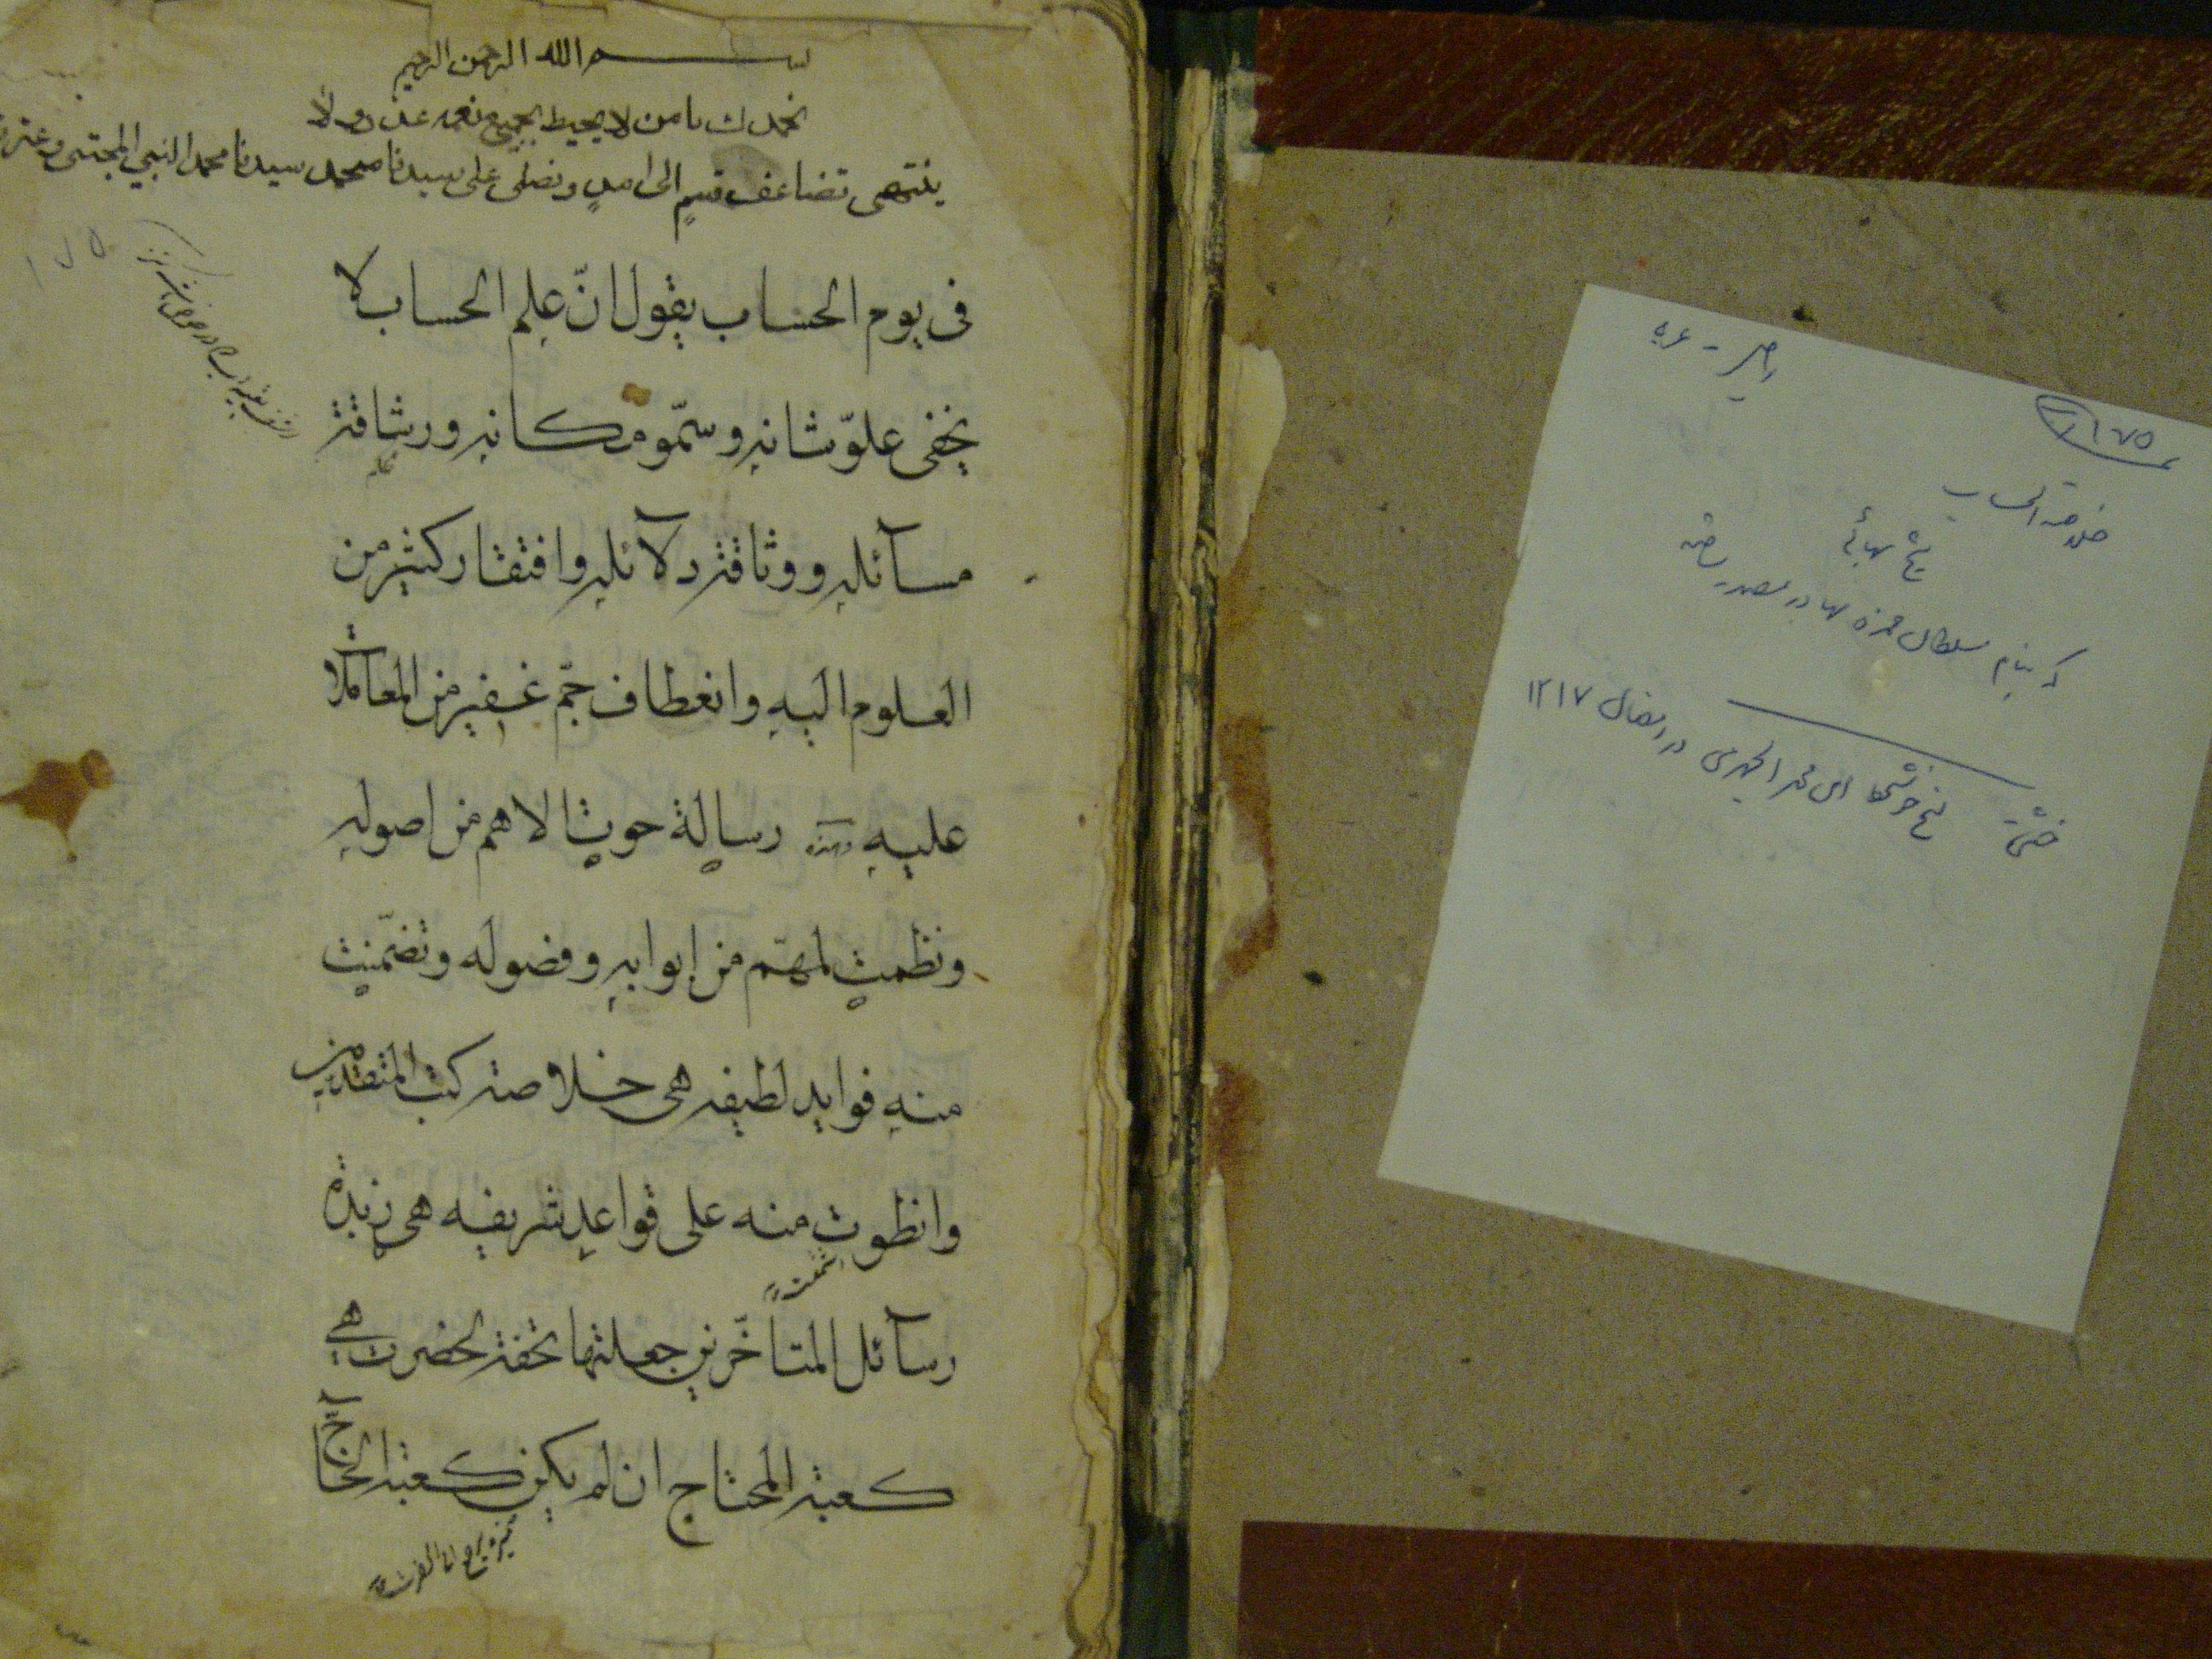 بسم الله الرحمن الرحيم
نحمدك يا من لا يحيط بجميع نعمه عدد ولا
ينتهى تضاعف قسم الى امد ونصلى على سيدنا محمد سيدنا محمد النبي المجتبى وعترته
فى يوم الحساب يقول انّ علم الحساب لا
يخفى علوّ شانه وسموّ مكانه ورشاقة
مسآئله ووثاقة دلآئله وافتقار كثير من
العلوم اليه وانعطاف جمّ غفير من المعاملات
عليه وهذه رسالة حوت الاهم من اصوله
ونظمت المهمّ من ابوابه وفصوله وتضمّنت
منه فوايد لطيفه هى خلاصة كتب المتقدمين
وانطوت منه على قواعد شريفه هى زبدة
رسآئل المتاخّرين جعلتها تحفة لحضرت هى
كعبة المحتاج ان لم يكن كعبة الحجّاج
١١٧٥
خلاصة الحساب
شیخ بهائی
که بنام سلطان حمزه بهادر
خطی نسخ در رمضان ١٢١٧